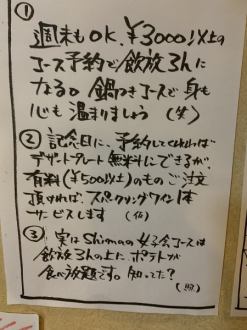 ①
週末もOK、¥3000以上の
コース予約で飲放るんに
なる。鍋つきコースで身も
心も温まりましょう (笑)
② 記念日に、予約してくだされば
デザートプレート無料にできるが、
有料(¥500以上)のものご注文
頂ければ、スパークリングワイン1本
サービスします
③ 実はShimaの女子会コースは
飲放るんの上に、ポテトが
食べ放題です。知ってた?